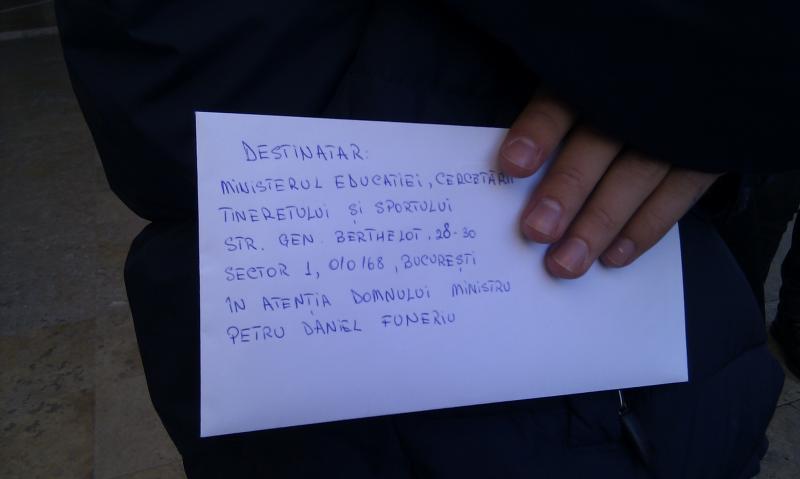 DESTINATAR:
MINISTERUL EDUCAȚIEI, CERCETĂRII
TINERETULUI ȘI SPORTULUI
STR. GEN. BERTHELOT, 28-30
SECTOR 1, 010168, BUCUREȘTI
ÎN ATENȚIA DOMNULUI MINISTRU
PETRU DANIEL FUNERIU